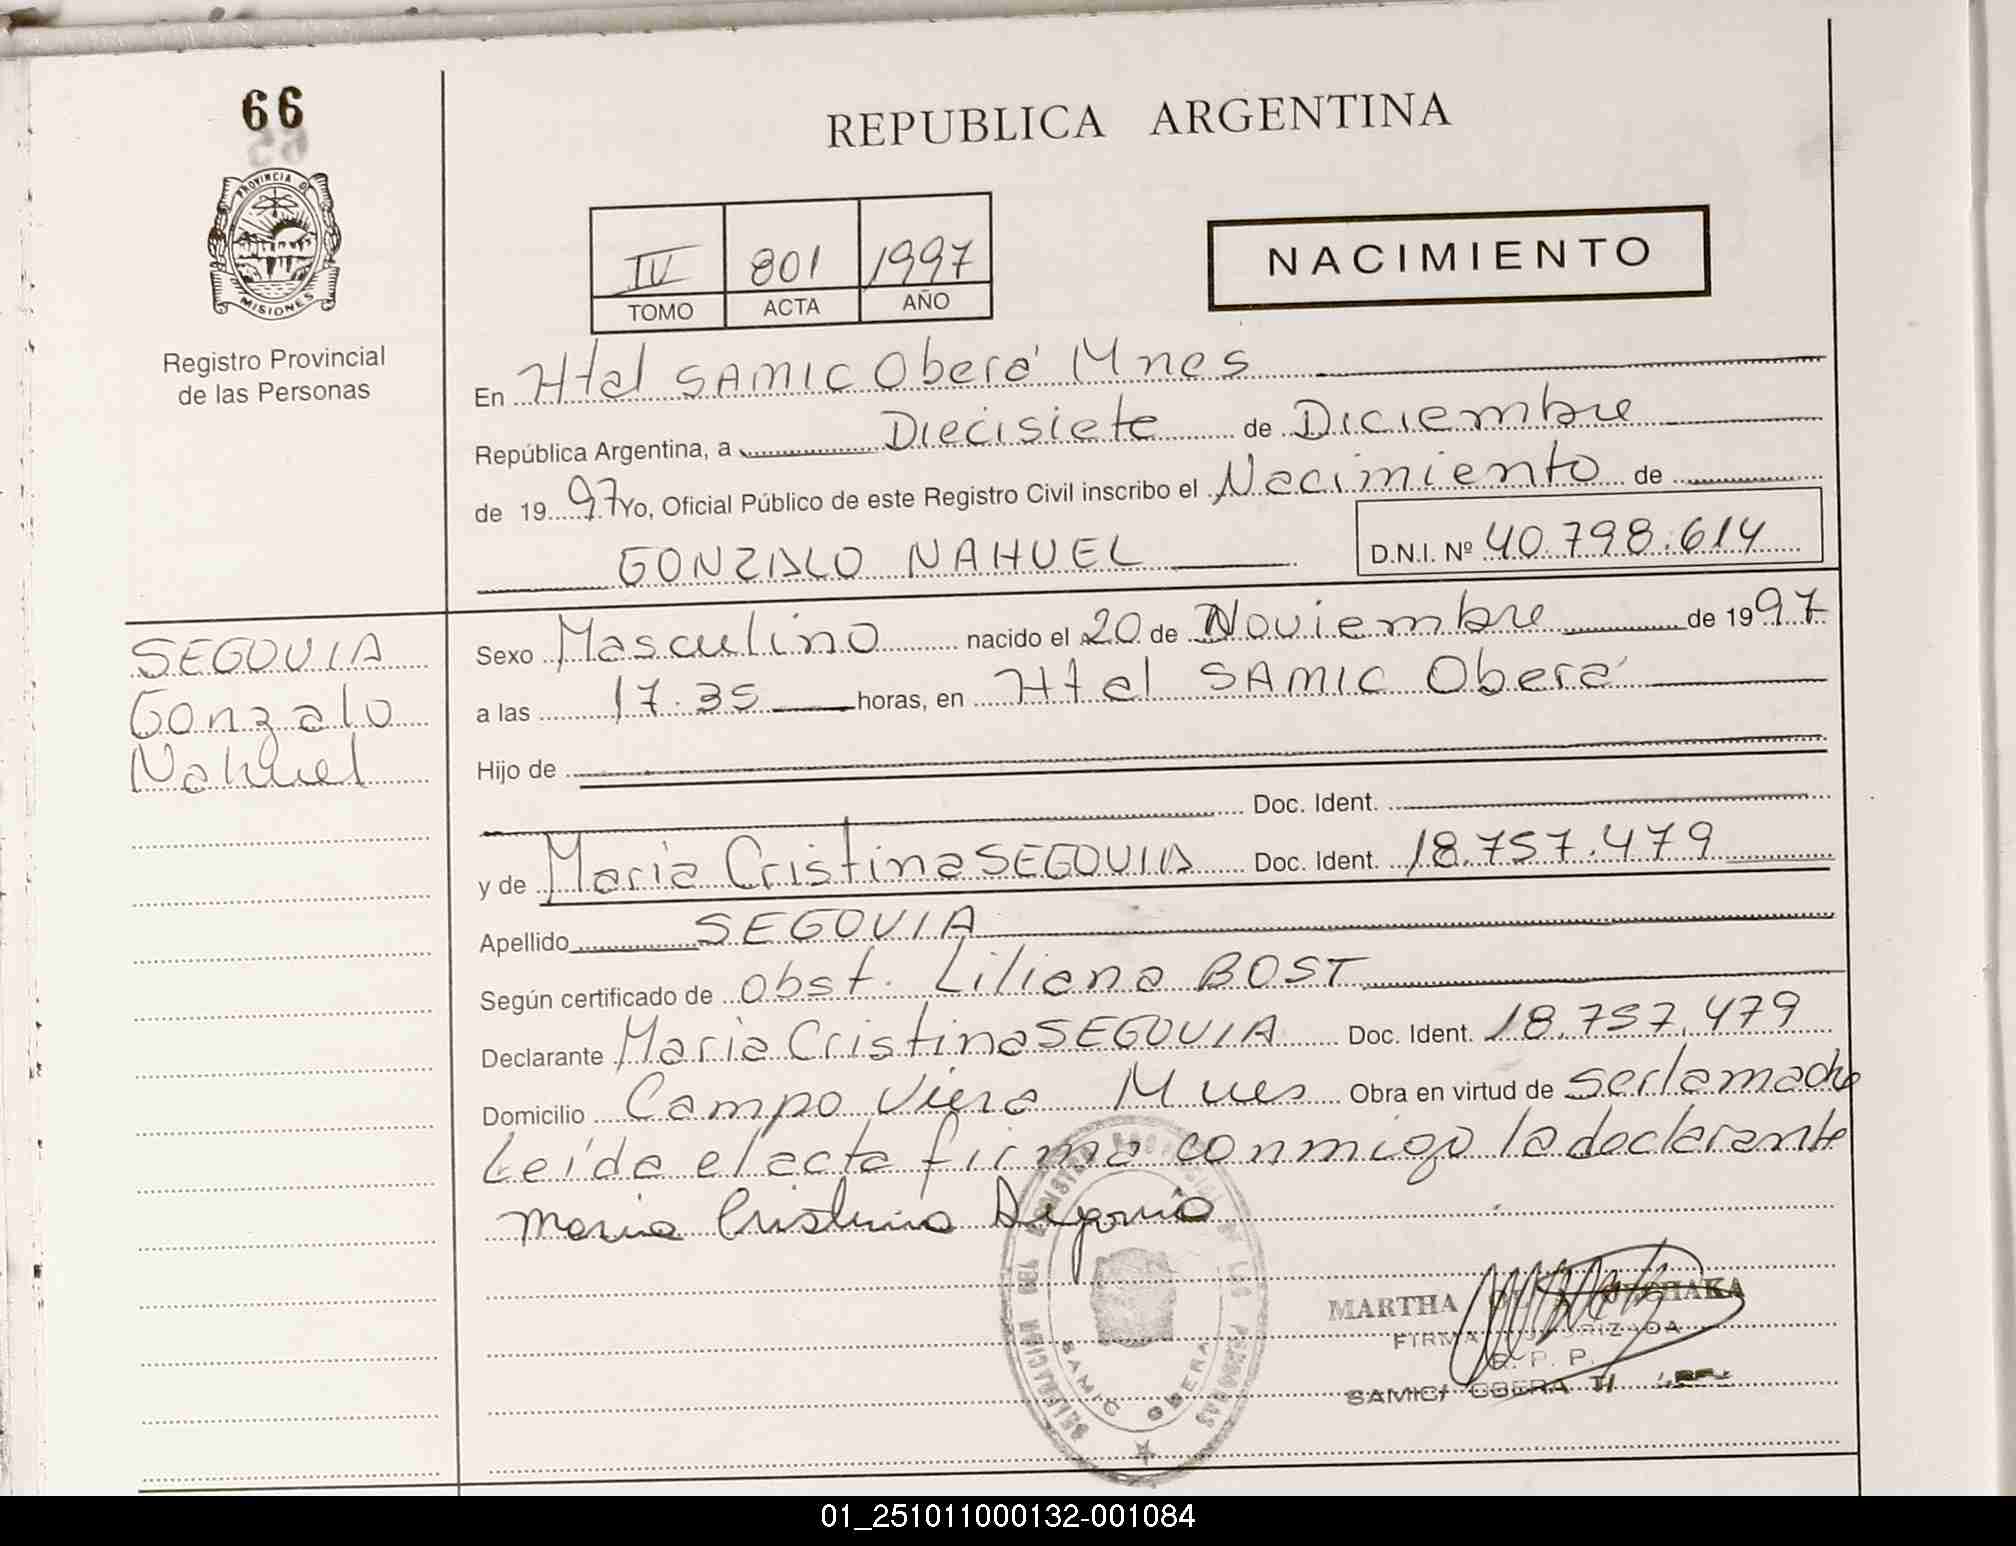 66
PROVINCIA D
MISIONES
Registro Provincial
de las Personas
REPUBLICA ARGENTINA
IV 801 1997
TOMO ACTA AÑO
NACIMIENTO
En Htal SAMIC Oberá Mnes
República Argentina, a Diecisiete de Diciembre
de 1997 Yo, Oficial Público de este Registro Civil inscribo el Nacimiento de
GONZALO NAHUEL D.N.I. Nº 40.798.614
SEGOVIA
Gonzalo
Nahuel
Sexo Masculino nacido el 20 de Noviembre de 1997
a las 17.35 horas, en Htal SAMIC Oberá
Hijo de
Doc. Ident.
y de Maria Cristina SEGOVIA Doc. Ident. 18.757.479
Apellido SEGOVIA
Según certificado de Obst. Liliana BOST
Declarante Maria Cristina SEGOVIA Doc. Ident. 18.757.479
Domicilio Campo Viera Mnes Obra en virtud de ser la madre
Leída el acta firma conmigo la declarante
Maria Cristina Segovia
MARTHA
FIRMA AUTORIZADA
R. P. P.
SAMIC OBERA
01_251011000132-001084